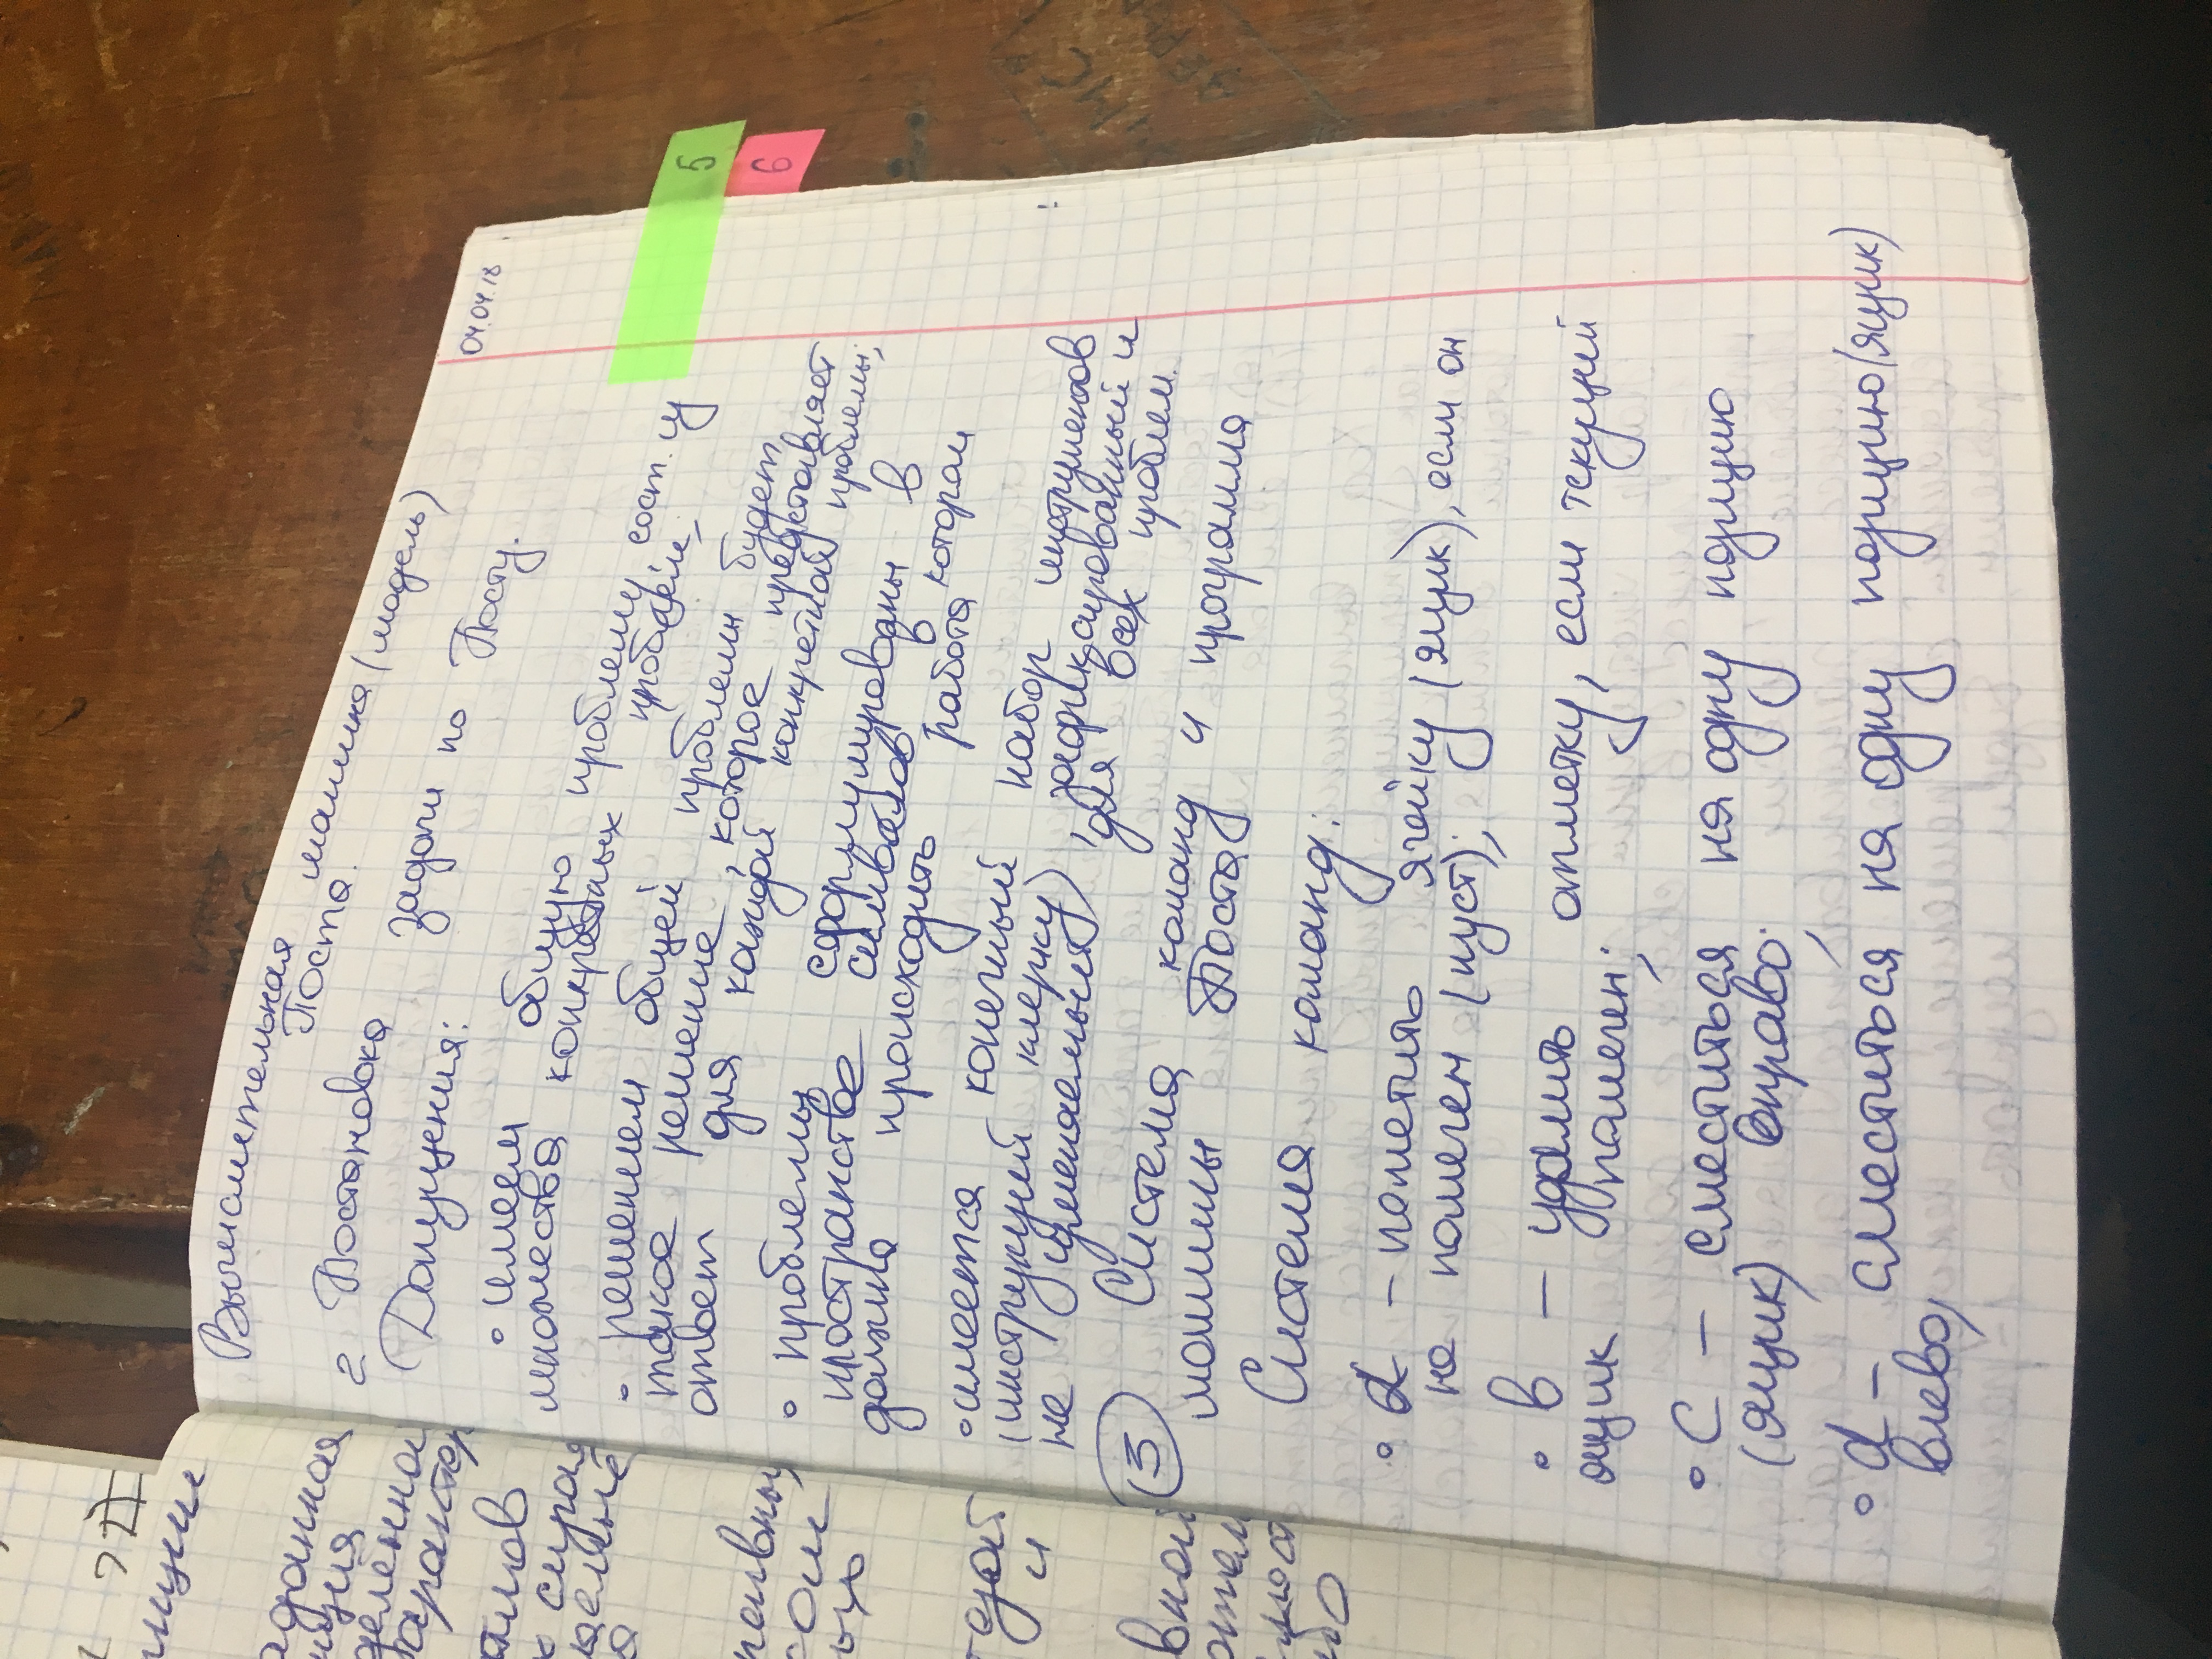 Вычислительная машина (модель)
Поста.
04.04.18
2. Постановка задачи по Посту.
Допущения:
• имеем общую проблему, сост. из
множества конкретных проблем;
• решением общей проблемы будет
такое решение, которое представляет
ответ для каждой конкретной проблемы;
• проблемы сформулированы в
пространстве символов, в котором
должна происходить работа
• имеется конечный набор инструментов
(инструкций клерку), зафиксированный и
не изменяемый для всех проблем.
3 Система команд и программа
машины Поста
Система команд:
• a – пометить ячейку (ящик), если он
не помечен (пуст);
• b – удалить отметку, если текущий
ящик помечен;
• c – сместиться на одну позицию
(ящик) вправо;
• d – сместиться на одну позицию (ящик)
влево;
5
6